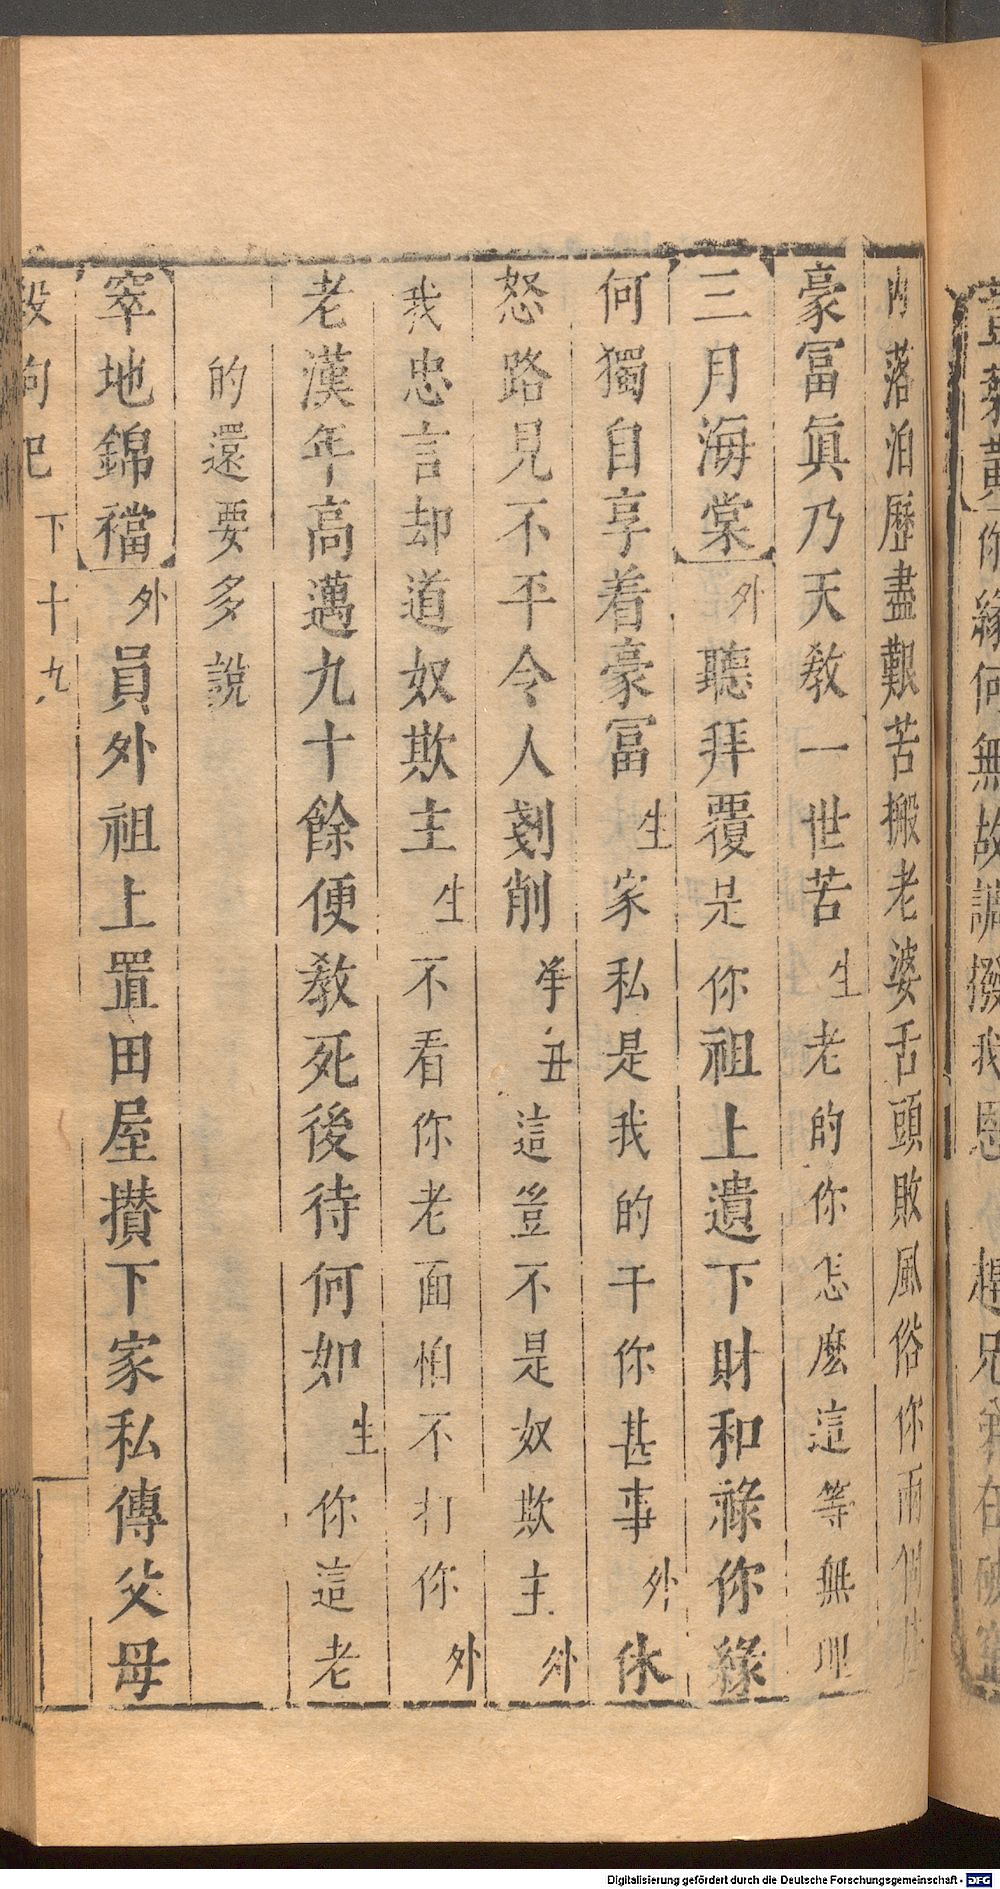 內落泊歷盡艱苦搬老婆舌頭敗風俗你兩個
豪冨眞乃天教一世苦生老的你怎麽這等無理
三月海棠外聽拜覆是你祖上遺下財和祿你緣
何獨自享着豪冨生家私是我的干你甚事外休
怒路見不平令人剗削净丑這豈不是奴欺主外
我忠言却道奴欺主生不看你老面怕不打你外
老漢年高邁九十餘便教死後待何如生你這老
的還要多說
窣地錦襠外員外祖上置田屋攅下家私傳父母
殺狗記下十九
你緣何無故調撥我恩
Digitalisierung gefördert durch die Deutsche Forschungsgemeinschaft - DFG